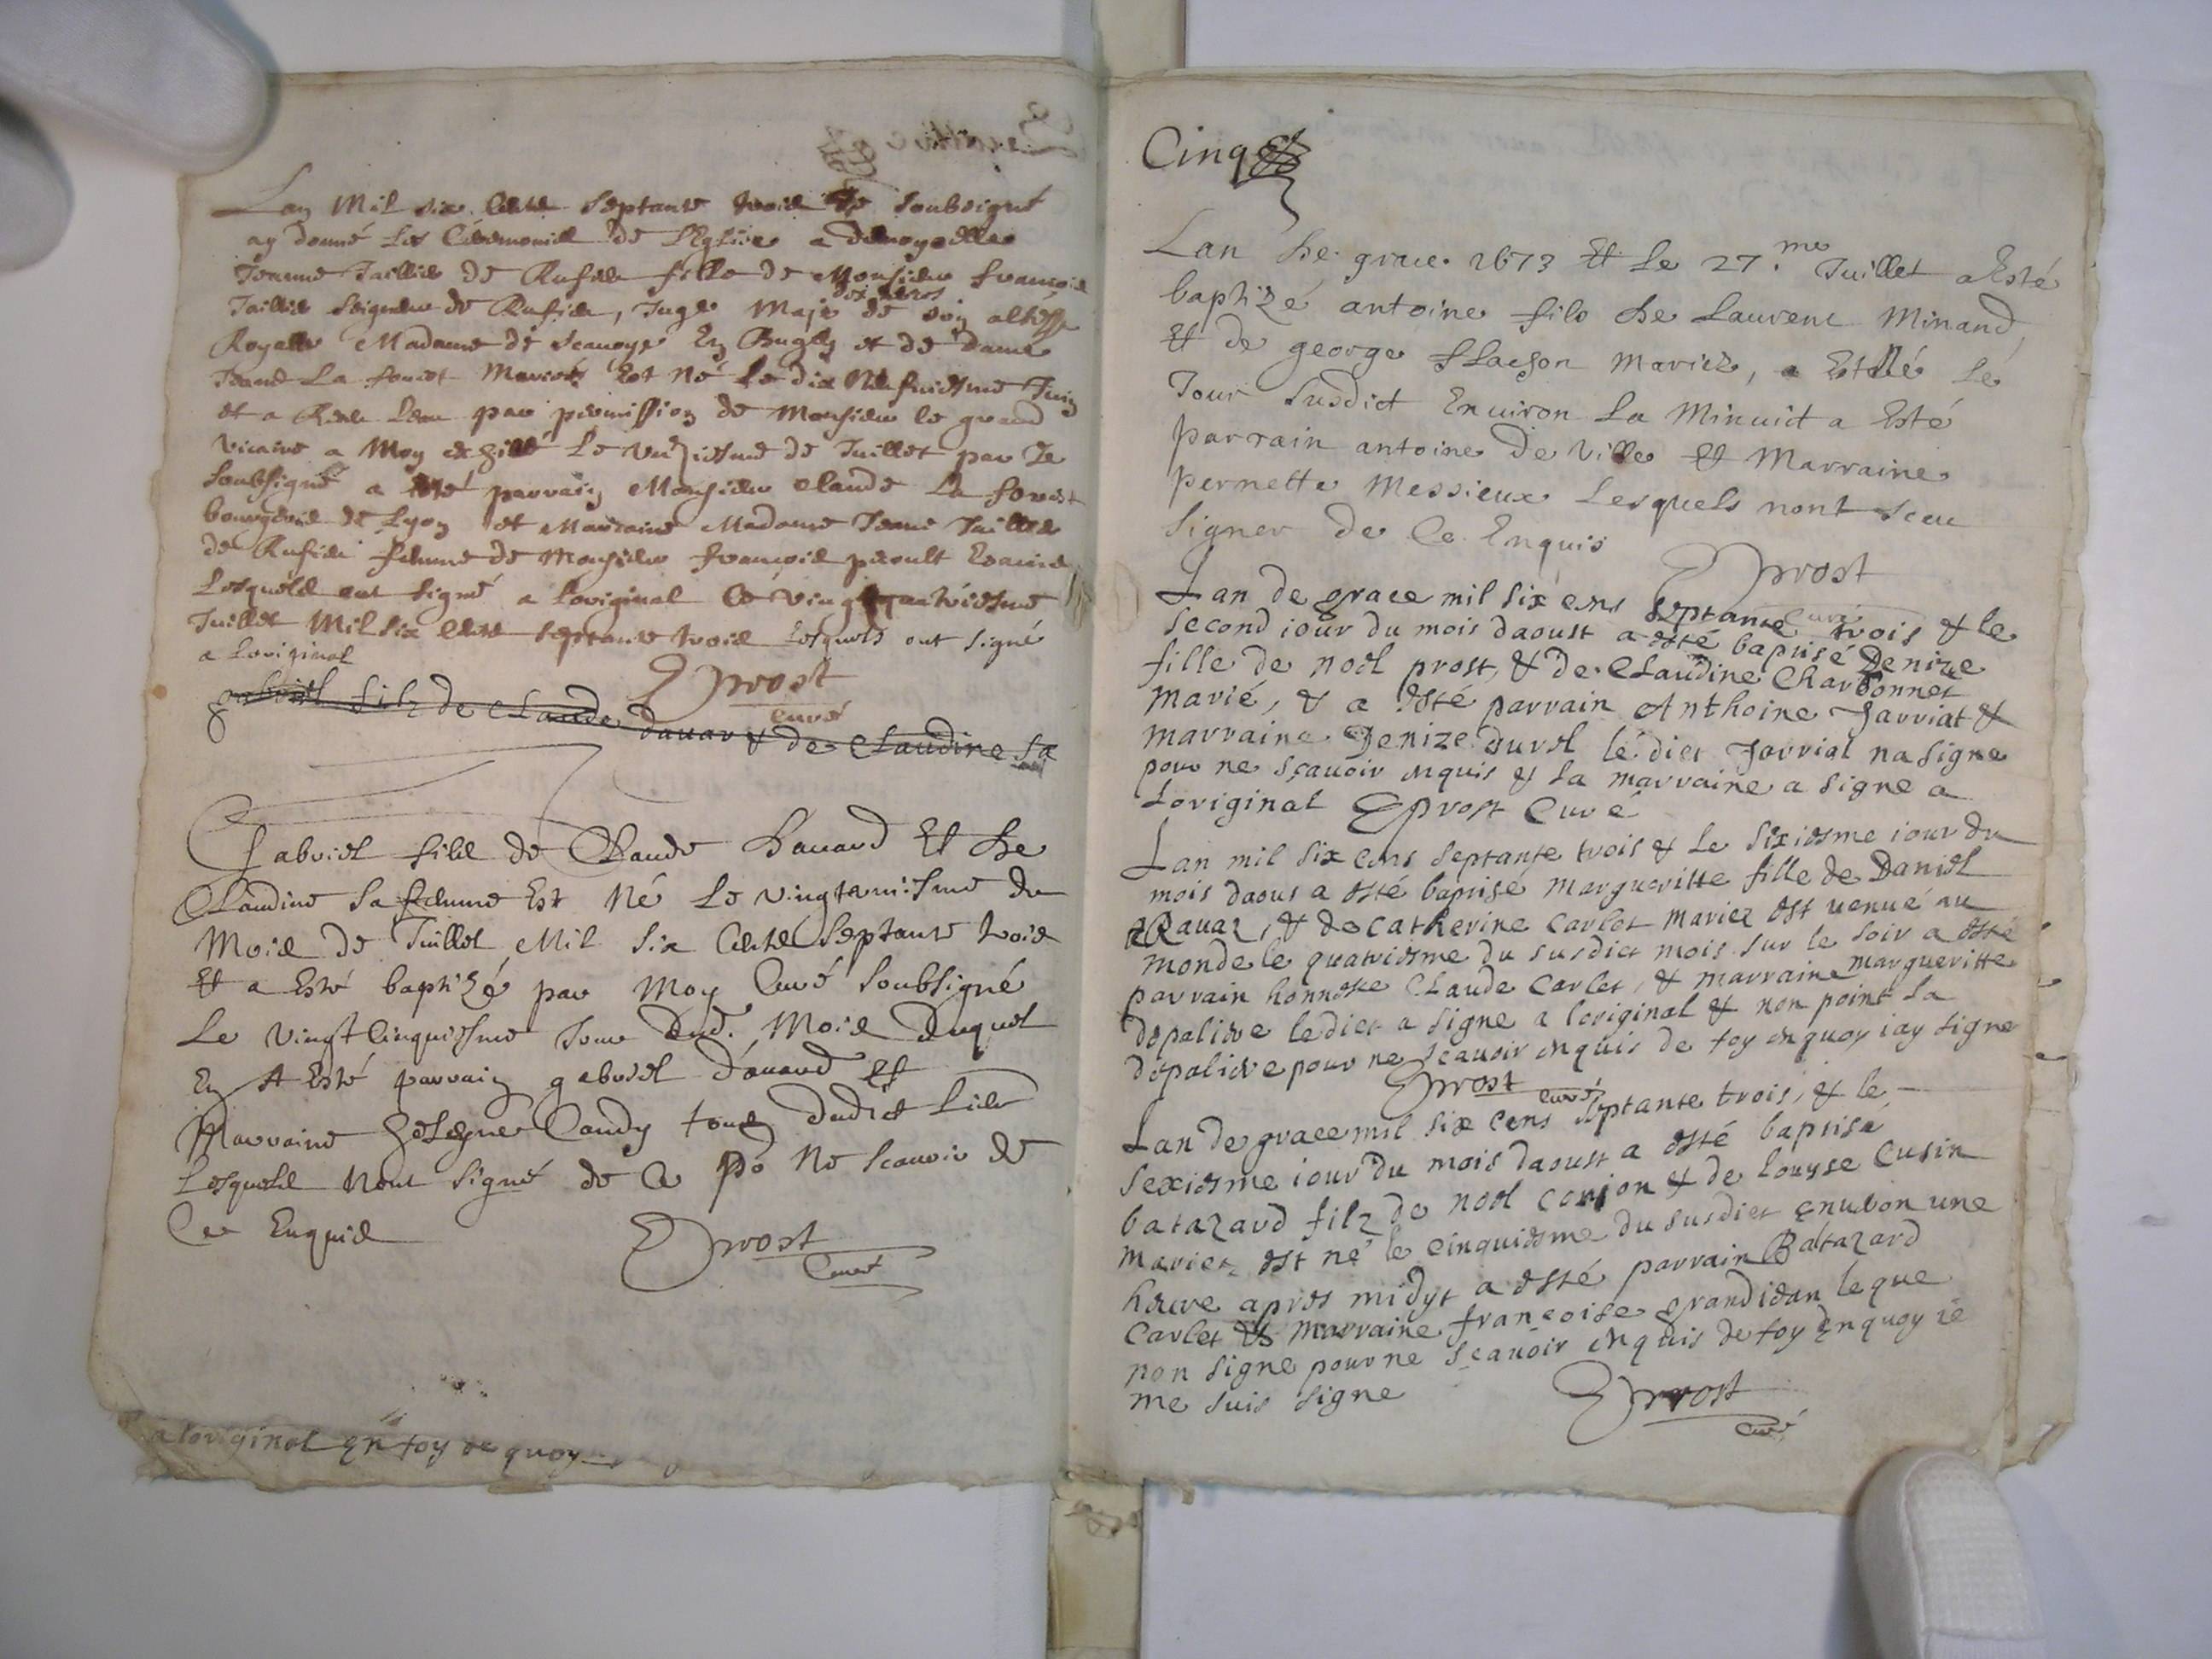 Lan Mil six Cents Septante trois Je Soubsigné
ay donné les Cérémonies de L'Eglise a damoyselle
Jeanne Taillie de Rufieu fille de Monsieur francois
Taillie Seigneur de Rufieu, Juge Maje de son altesse
Royalle Madame de Scauoye En Bugey et de dame
La forest Mariés Est Né Le dix Juin
et a par permission de Monsieur le grand
vicaire a Moy Le de Juillet par Je
Soubsigné a esté parrain Monsieur Claude La forest
bourgeois de Lyon et Marraine Madame Jeanne
de Rufieu femme de Monsieur francois
Lesquels ont signé a Loriginal Ce vingt quatriesme
Juillet Mil six Cents Septante trois Lesquels ont signé
a Loriginal
Prost
curé
gabriel filz de Claude dauar & de Claudine sa
Gabriel fils de Claude dauard Et de
Claudine Sa femme Est Né Le du
Mois de Juillet Mil six Cents Septante trois
Et a Esté baptizé par Moy Curé Soubsigné
Le vingt Cinquiesme Jour dud. Mois duquel
En A Esté parrain gabriel dauard et
Marraine tous dudict Lieu
Lesquels Nont Signé de Ce po Ne Scauoir de
Ce Enquis
Prost
Curé
a loriginal En foy de quoy
Cinq
Lan de grace 1673 Et Le 27.me Juillet a Esté
baphizé antoine fils de Laurent Minand,
Et de george Mariez, a Esté né Lé
Jour Susdict Enuiron La Minuit a Esté
parrain antoine De Ville Et Marraine
pernette Messieux Lesquels nont sceu
Signer de Ce Enquis
Prost
curé
Lan de grace mil six cens septante trois & le
second iour du mois daoust a esté baptisé Denize
fille de noel prost, & de Claudine Charbonnet
marié, & a esté parrain Anthoine Jarriat &
marraine Denize durel le dict Jarriat na signe
pour ne sçauoir enquis & la marraine a signe a
Loriginal Prost Curé
Lan mil six cens septante trois & le sixiesme iour du
mois daous a esté baptisé margueritte fille de Daniel
Rauaz, & de Catherine Carlet mariez est uenue au
monde le quatriesme du susdict mois sur le soir a esté
parrain honneste Claude Carlet, & marraine margueritte
depaliere ledict a signe a loriginal & non point la
depaliere pour ne scauoir enquis de foy enquoy iay signe
Prost curé
Lan de grace mil six cens septante trois, & le
sexiesme iour du mois daoust a esté baptise
batazard filz de noel & de Louyse Cusin
mariez est né le cinquiesme du susdict enuiron une
heure apres midyt a esté parrain Batazard
Carlet & marraine francoise grandidan le que
non signe pour ne sçauoir enquis de foy Enquoy ie
me suis signe
Prost
Curé